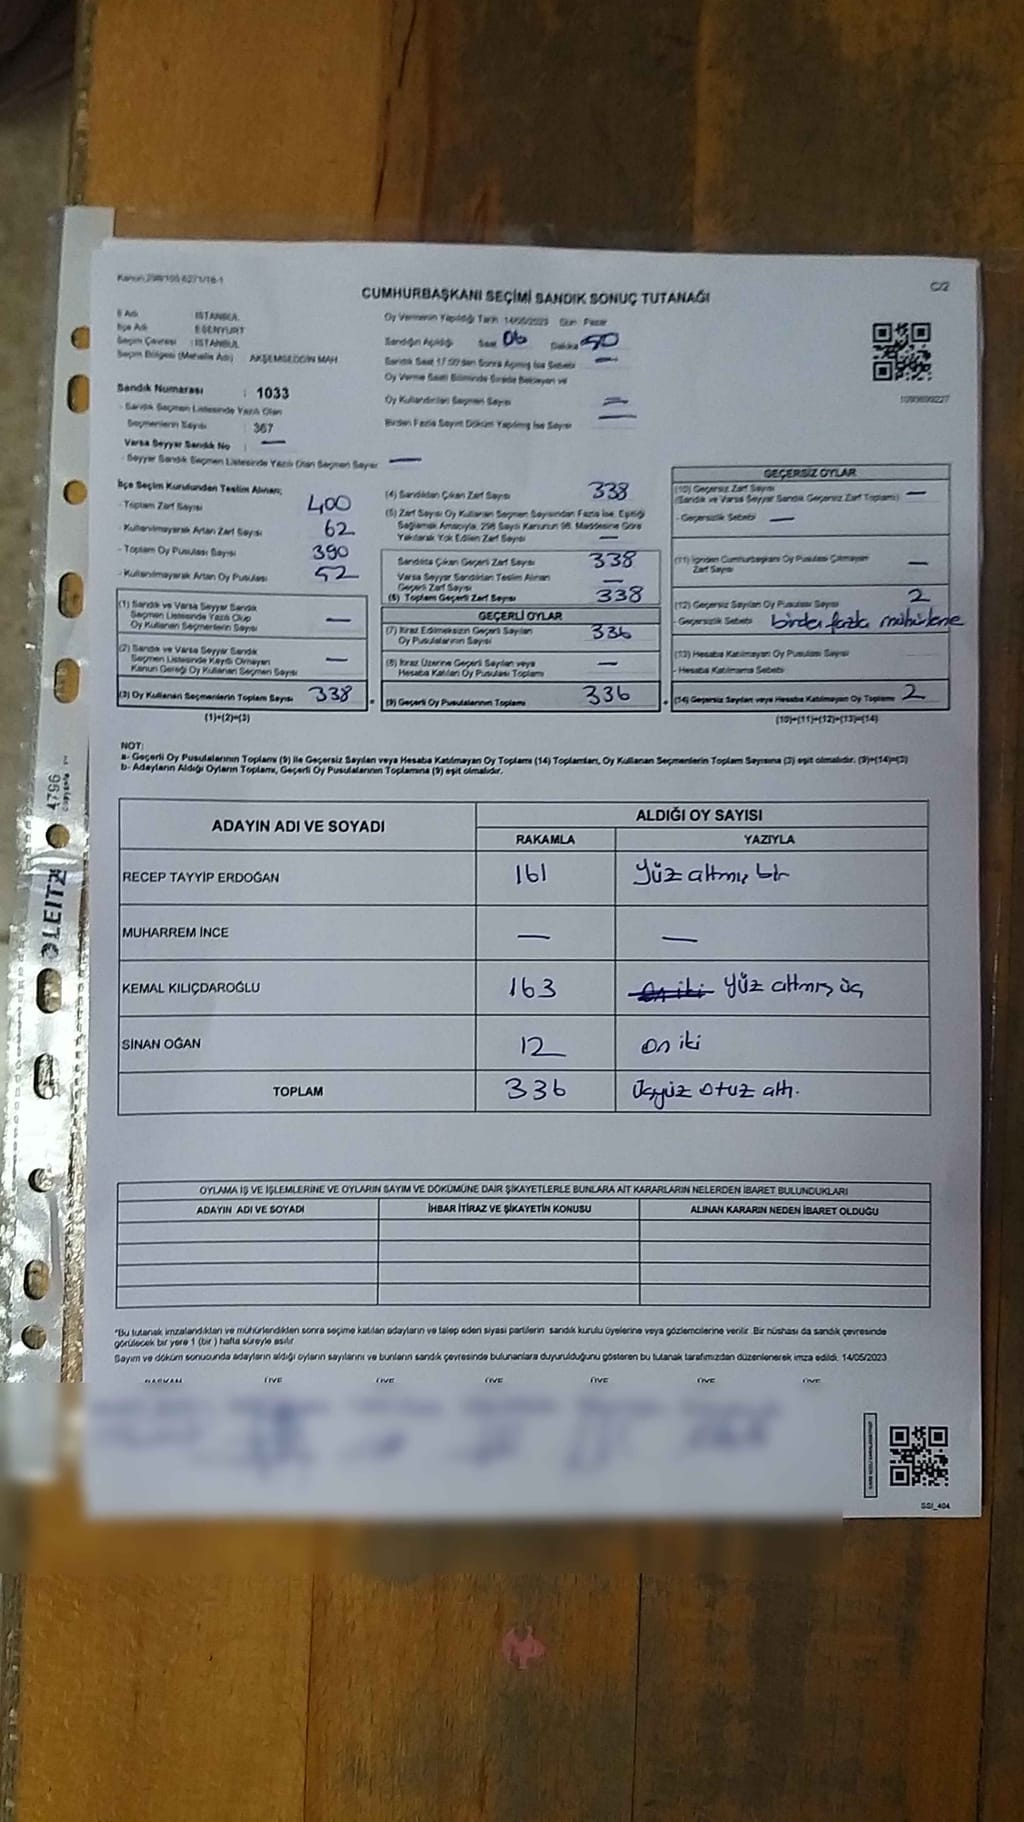 Kanun 298/105 6271/18-1
C/2
CUMHURBAŞKANI SEÇİMİ SANDIK SONUÇ TUTANAĞI
İl Adı : İSTANBUL
İlçe Adı : ESENYURT
Seçim Çevresi : İSTANBUL
Seçim Bölgesi (Mahalle Adı) : AKŞEMSEDDİN MAH
Sandık Numarası : 1033
- Sandık Seçmen Listesinde Yazılı Olan
Seçmenlerin Sayısı : 367
Varsa Seyyar Sandık No : —
- Seyyar Sandık Seçmen Listesinde Yazılı Olan Seçmen Sayısı —
Oy Vermenin Yapıldığı Tarih 14/05/2023 Gün Pazar
Sandığın Açıldığı Saat 06 Dakika
Sandık Saat 17:00'den Sonra Açılmış İse Sebebi —
Oy Verme Saati Bitiminde Sırada Bekleyen ve
Oy Kullandırılan Seçmen Sayısı —
Birden Fazla Sayım Döküm Yapılmış İse Sayısı —
1093699227
İlçe Seçim Kurulundan Teslim Alınan;
- Toplam Zarf Sayısı 400
- Kullanılmayarak Artan Zarf Sayısı 62
- Toplam Oy Pusulası Sayısı 390
- Kullanılmayarak Artan Oy Pusulası 52
(1) Sandık ve Varsa Seyyar Sandık
Seçmen Listesinde Yazılı Olup
Oy Kullanan Seçmenlerin Sayısı —
(2) Sandık ve Varsa Seyyar Sandık
Seçmen Listesinde Kaydı Olmayan
Kanun Gereği Oy Kullanan Seçmen Sayısı —
(3) Oy Kullanan Seçmenlerin Toplam Sayısı 338
(1)+(2)=(3)
(4) Sandıktan Çıkan Zarf Sayısı 338
(5) Zarf Sayısı Oy Kullanan Seçmen Sayısından Fazla İse, Eşitliği
Sağlamak Amacıyla, 298 Sayılı Kanunun 98. Maddesine Göre
Yakılarak Yok Edilen Zarf Sayısı —
Sandıkta Çıkan Geçerli Zarf Sayısı 338
Varsa Seyyar Sandıktan Teslim Alınan
Geçerli Zarf Sayısı —
(6) Toplam Geçerli Zarf Sayısı 338
GEÇERLİ OYLAR
(7) İtiraz Edilmeksizin Geçerli Sayılan
Oy Pusulalarının Sayısı 336
(8) İtiraz Üzerine Geçerli Sayılan veya
Hesaba Katılan Oy Pusulası Toplamı —
(9) Geçerli Oy Pusulalarının Toplamı 336
GEÇERSİZ OYLAR
(10) Geçersiz Zarf Sayısı
(Sandık ve Varsa Seyyar Sandık Geçersiz Zarf Toplamı) —
- Geçersizlik Sebebi —
(11) İçinden Cumhurbaşkanı Oy Pusulası Çıkmayan
Zarf Sayısı —
(12) Geçersiz Sayılan Oy Pusulası Sayısı 2
- Geçersizlik Sebebi birden fazla mühürleme
(13) Hesaba Katılmayan Oy Pusulası Sayısı
- Hesaba Katılmama Sebebi
(14) Geçersiz Sayılan veya Hesaba Katılmayan Oy Toplamı 2
(10)+(11)+(12)+(13)=(14)
NOT:
a- Geçerli Oy Pusulalarının Toplamı (9) ile Geçersiz Sayılan veya Hesaba Katılmayan Oy Toplamı (14) Toplamları, Oy Kullanan Seçmenlerin Toplam Sayısına (3) eşit olmalıdır. (9)+(14)=(3)
b- Adayların Aldığı Oyların Toplamı, Geçerli Oy Pusulalarının Toplamına (9) eşit olmalıdır.
ADAYIN ADI VE SOYADI ALDIĞI OY SAYISI
RAKAMLA YAZIYLA
RECEP TAYYİP ERDOĞAN 161 yüz altmış bir
MUHARREM İNCE — —
KEMAL KILIÇDAROĞLU 163 on iki yüz altmış üç
SİNAN OĞAN 12 on iki
TOPLAM 336 üçyüz otuz altı.
OYLAMA İŞ VE İŞLEMLERİNE VE OYLARIN SAYIM VE DÖKÜMÜNE DAİR ŞİKAYETLERLE BUNLARA AİT KARARLARIN NELERDEN İBARET BULUNDUKLARI
ADAYIN ADI VE SOYADI İHBAR İTİRAZ VE ŞİKAYETİN KONUSU ALINAN KARARIN NEDEN İBARET OLDUĞU
*Bu tutanak imzalandıktan ve mühürlendikten sonra seçime katılan adayların ve talep eden siyasi partilerin sandık kurulu üyelerine veya gözlemcilerine verilir. Bir nüshası da sandık çevresinde
görülecek bir yere 1 (bir) hafta süreyle asılır.
Sayım ve döküm sonucunda adayların aldığı oyların sayılarını ve bunların sandık çevresinde bulunanlara duyurulduğunu gösteren bu tutanak tarafımızdan düzenlenerek imza edildi. 14/05/2023
BAŞKAN ÜYE ÜYE ÜYE ÜYE ÜYE ÜYE
SSI_404
LEITZ 4796